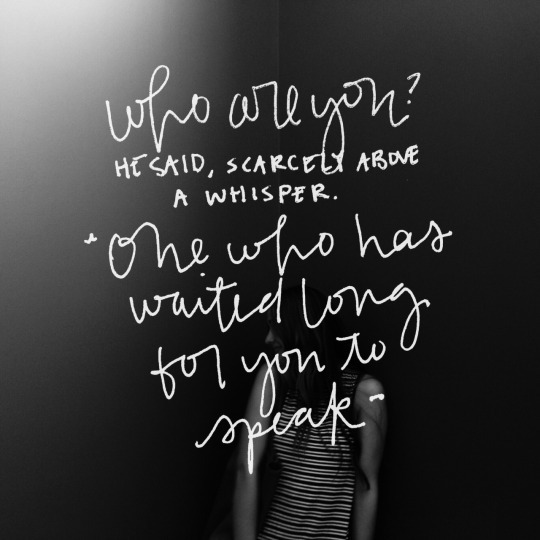 who are you?
HE SAID, SCARCELY ABOVE
A WHISPER.
"One who has
waited long
for you to
speak"